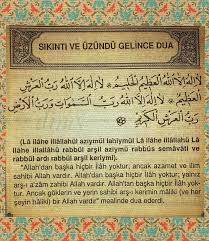 SIKINTI VE ÜZÜNDÜ GELİNCE DUA
لَا إِلٰهَ إِلَّا اللهُ الْعَظِيمُ الْحَلِيمُ ۞ لَا إِلٰهَ إِلَّا اللهُ رَبُّ الْعَرْشِ
الْعَظِيمِ ۞ لَا إِلٰهَ إِلَّا اللهُ رَبُّ السَّمٰوَاتِ وَرَبُّ الْاَرْضِ
وَرَبُّ الْعَرْشِ الْكَرِيمِ
(Lâ ilâhe illâllâhül aziymül lahiymül Lâ
ilâhe illallâhü rabbül arşil aziymü Lâ ilâhe
illallâhü rabbüs semâvâti ve
rabbül ardı rabbül arşil keriymi).
"Allah'dan başka hiçbir ilâh
yoktur; ancak azamet ve ilim
sahibi Allah vardır. Allah'dan başka hiçbir İlâh yok-
tur; yalnız arş-ı a'zâm sahibi Allah vardır. Allah'tan
başka hiçbir İlâh yoktur. Ancak göklerin
ve yerin sahibi arş-ı kerimin mâlikî (ve her
şeyin hâlikı) bir Allah vardır" mealinde dua ederdi.